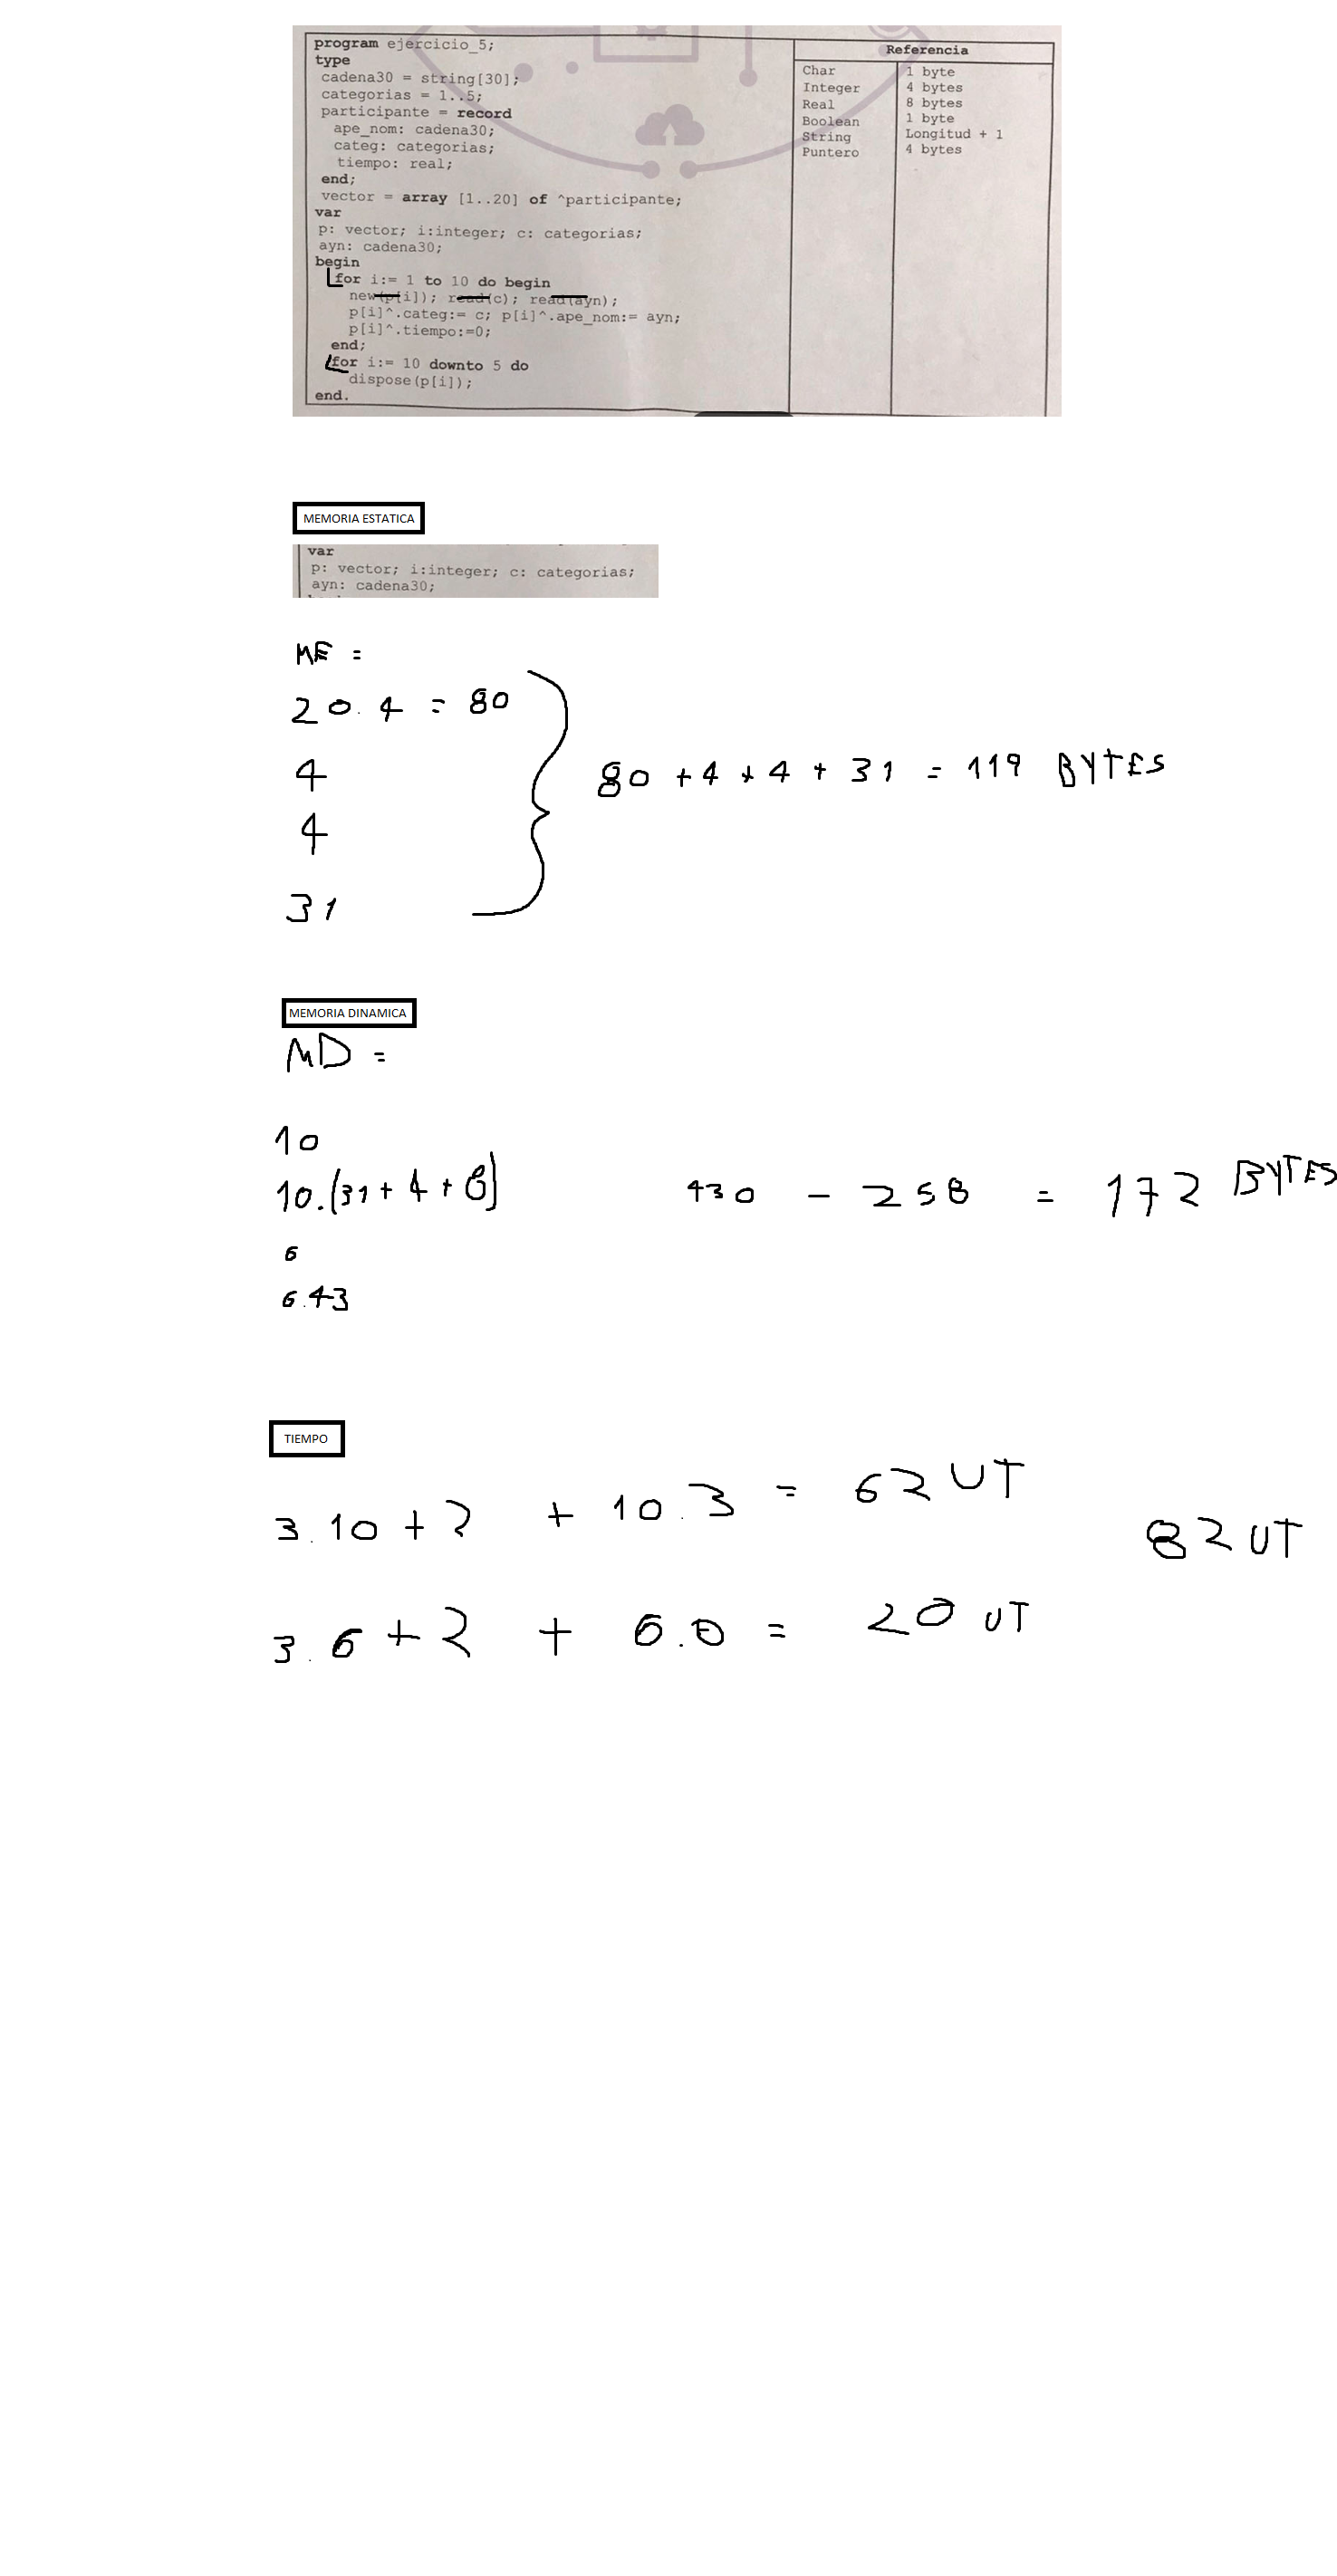 program ejercicio_5;
type
cadena30 = string[30];
categorias = 1..5;
participante = record
ape_nom: cadena30;
categ: categorias;
tiempo: real;
end;
vector = array [1..20] of ^participante;
var
p: vector; i:integer; c: categorias;
ayn: cadena30;
begin
for i:= 1 to 10 do begin
new(p[i]); read(c); read(ayn);
p[i]^.categ:= c; p[i]^.ape_nom:= ayn;
p[i]^.tiempo:=0;
end;
for i:= 10 downto 5 do
dispose(p[i]);
end.
Referencia
Char 1 byte
Integer 4 bytes
Real 8 bytes
Boolean 1 byte
String Longitud + 1
Puntero 4 bytes
MEMORIA ESTATICA
var
p: vector; i:integer; c: categorias;
ayn: cadena30;
ME =
20.4 = 80
4
4
31
80 + 4 + 4 + 31 = 119 BYTES
MEMORIA DINAMICA
MD =
10
10.(31+4+8) 430 - 258 = 172 BYTES
6
6.43
TIEMPO
3.10+2 + 10.3 = 62 UT
82 UT
3.6+2 + 6.0 = 20 UT